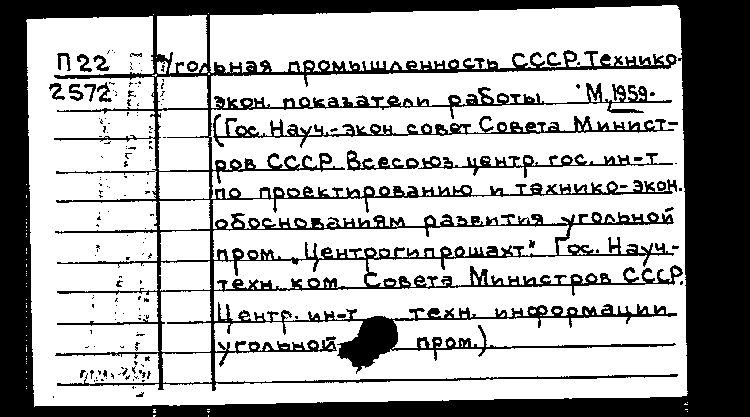 П22 Угольная промышленность СССР. Технико-
2572 экон. показатели работы. М., 1959.
(Гос. Науч.-экон. совет Совета Минист-
ров СССР. Всесоюз. центр. гос. ин-т
по проектированию и технико-экон.
обоснованиям развития угольной
пром. „Центрогипрошахт". Гос. Науч.-
техн. ком. Совета Министров СССР.
Центр. ин-т техн. информации
угольной пром.).